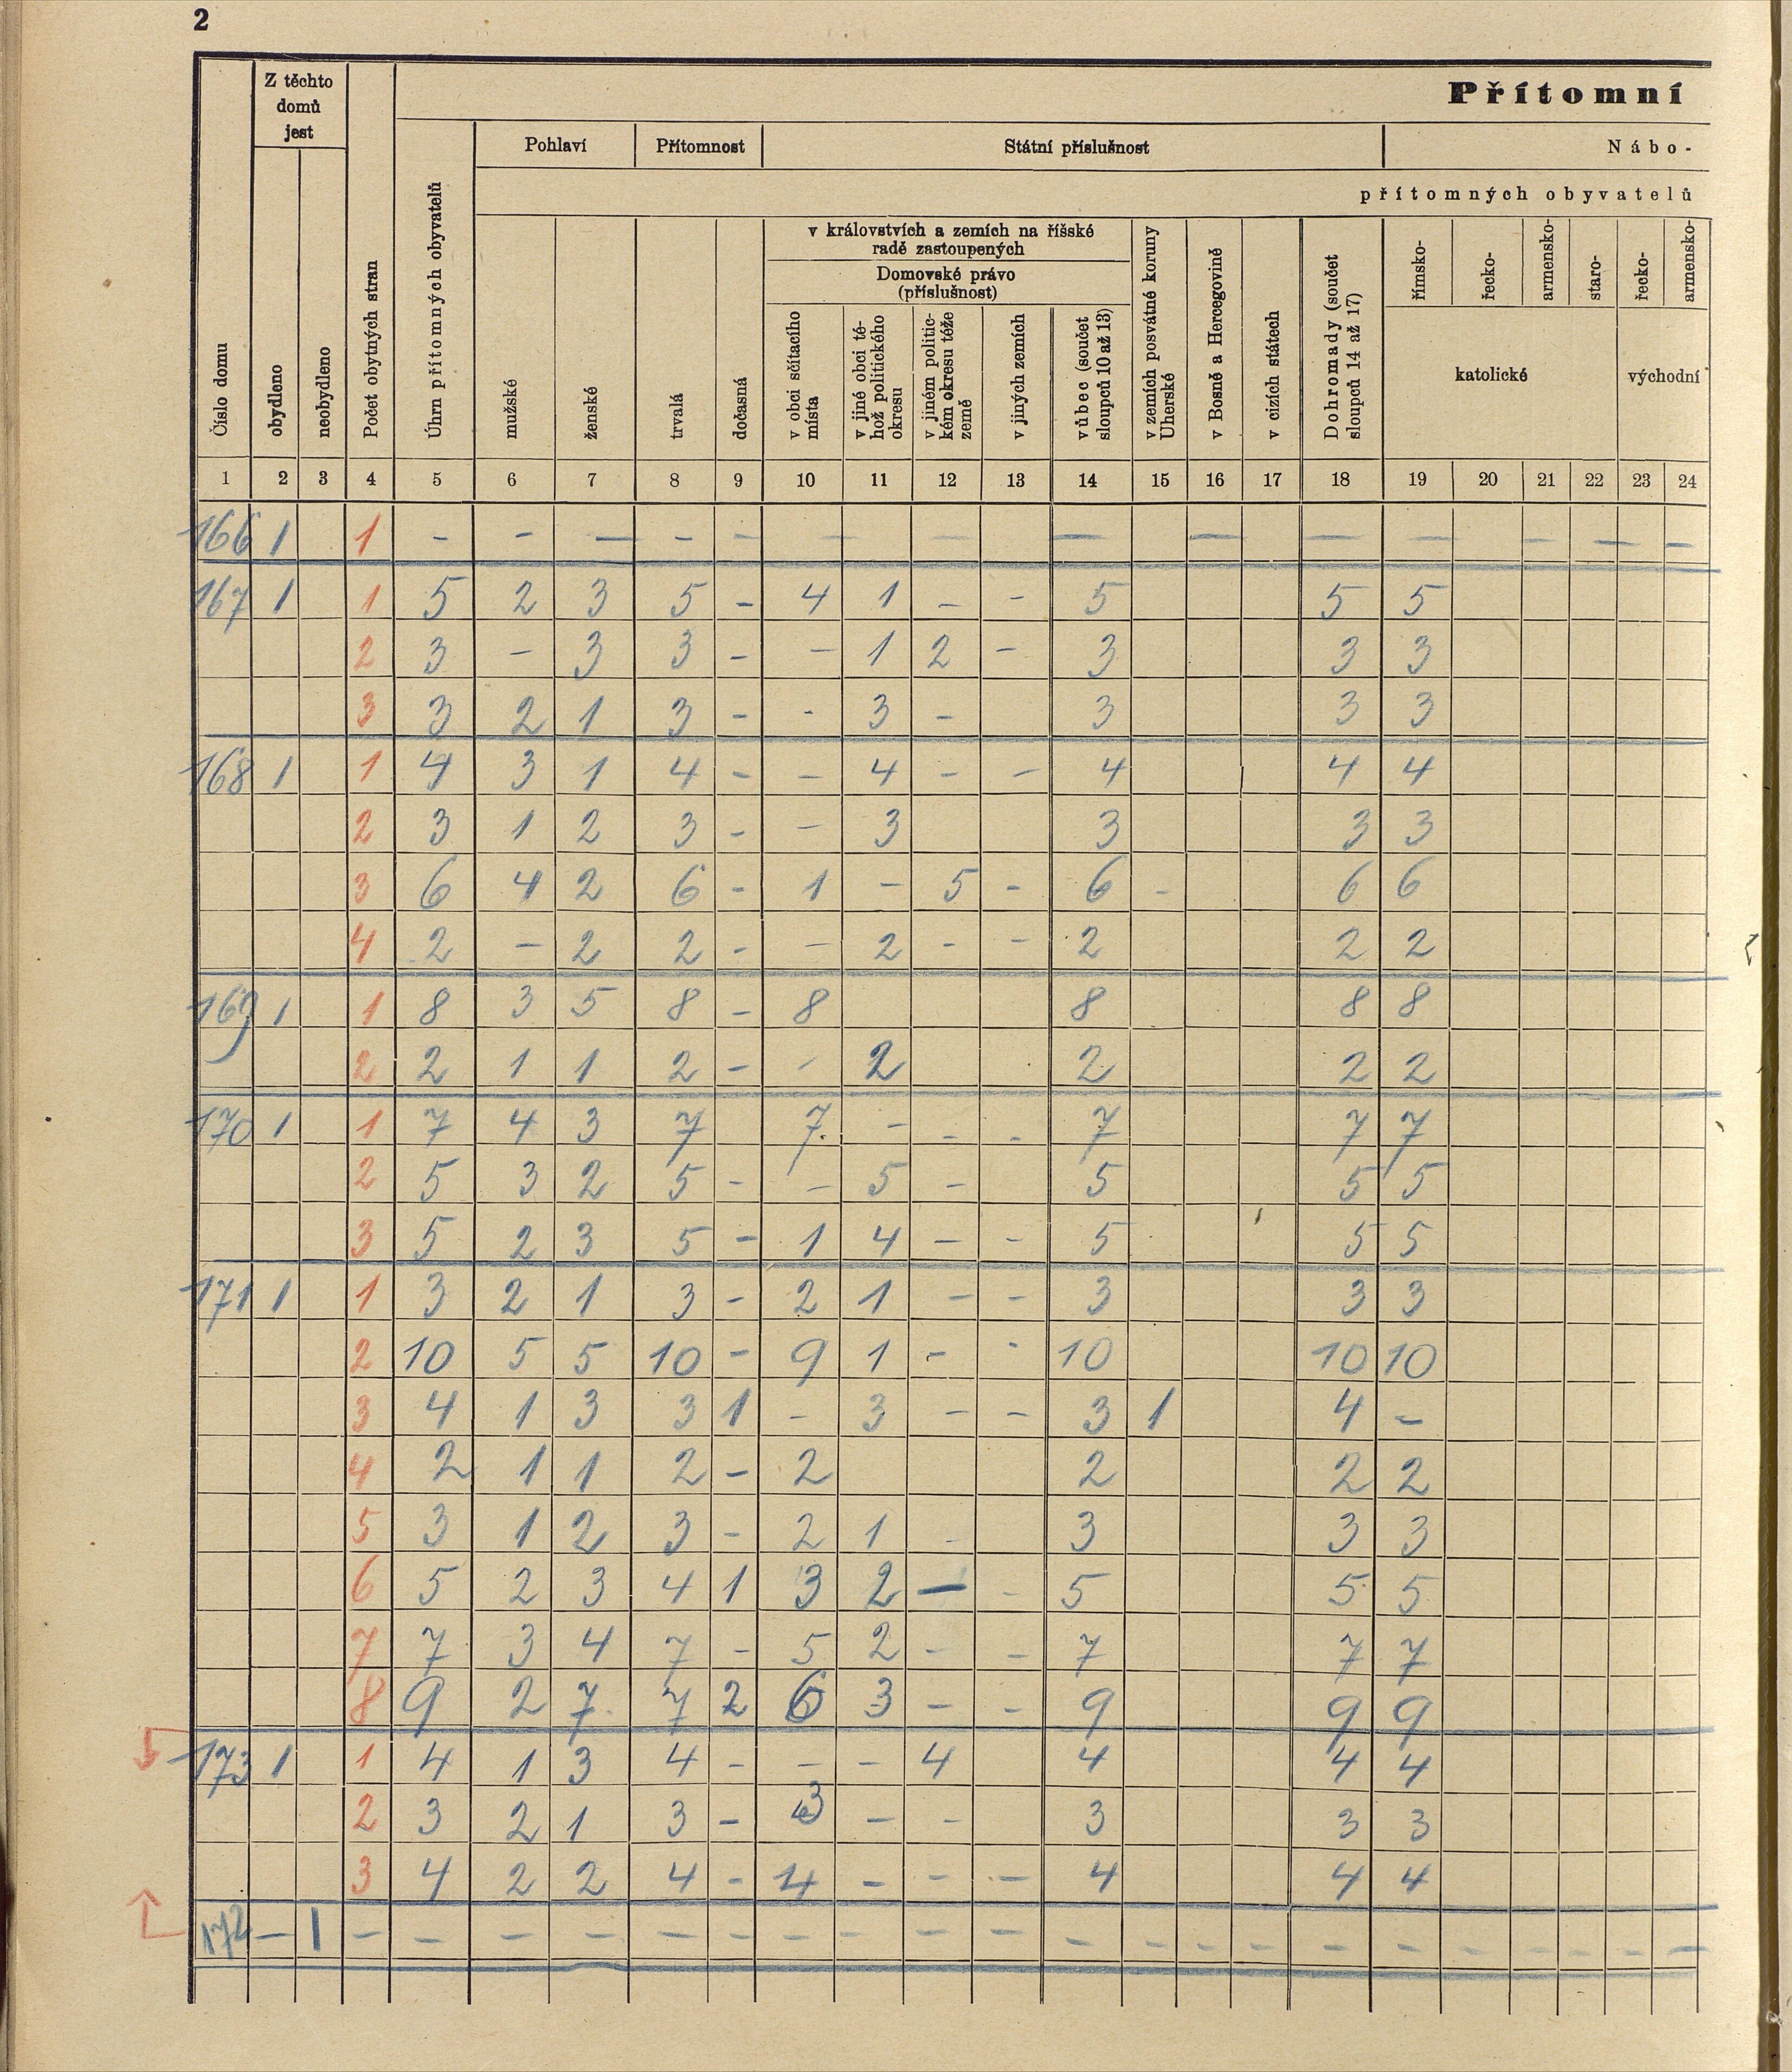 2
Přítomní
Z těchto domů jest
Pohlaví Přítomnost Státní příslušnost Nábo-
přítomných obyvatelů
v královstvích a zemích na říšské radě zastoupených
Domovské právo (příslušnost)
Číslo domu
obydleno
neobydleno
Počet obytných stran
Úhrn přítomných obyvatelů
mužské
ženské
trvalá
dočasná
v obci sčítacího místa
v jiné obci téhož politického okresu
v jiném politickém okresu téže země
v jiných zemích
vůbec (součet sloupců 10 až 13)
v zemích posvátné koruny Uherské
v Bosně a Hercegovině
v cizích státech
Dohromady (součet sloupců 14 až 17)
římsko-
řecko-
armensko-
staro-
řecko-
armensko-
katolické
východní
1 2 3 4 5 6 7 8 9 10 11 12 13 14 15 16 17 18 19 20 21 22 23 24
166 1 1 - - - - - - - - - - - - - - -
167 1 1 5 2 3 5 - 4 1 - - 5 5 5
2 3 - 3 3 - - 1 2 - 3 3 3
3 3 2 1 3 - - 3 - 3 3 3
168 1 1 4 3 1 4 - - 4 - - 4 4 4
2 3 1 2 3 - - 3 3 3 3
3 6 4 2 6 - 1 - 5 - 6 - 6 6
4 2 - 2 2 - - 2 - - 2 2 2
169 1 1 8 3 5 8 - 8 8 8 8
2 2 1 1 2 - - 2 2 2 2
170 1 1 7 4 3 7 7 - - - 7 7 7
2 5 3 2 5 - - 5 - 5 5 5
3 5 2 3 5 - 1 4 - - 5 5 5
171 1 1 3 2 1 3 - 2 1 - - 3 3 3
2 10 5 5 10 - 9 1 - - 10 10 10
3 4 1 3 3 1 - 3 - - 3 1 4 -
4 2 1 1 2 - 2 2 2 2
5 3 1 2 3 - 2 1 - 3 3 3
6 5 2 3 4 1 3 2 - - 5 5 5
7 7 3 4 7 - 5 2 - - 7 7 7
8 9 2 7 7 2 6 3 - - 9 9 9
173 1 1 4 1 3 4 - - - 4 4 4 4
2 3 2 1 3 - 3 - - 3 3 3
3 4 2 2 4 - 4 - - - 4 4 4
172 - 1 - - - - - - - - - - - - - - - - - - - - -